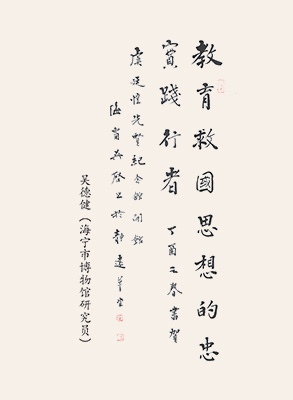 教育救國思想的忠
實踐行者
丁酉之春書賀
虞廷愷先賢紀念館開館
海甯吳啓上於静遠草堂
吴德健（海宁市博物馆研究员）